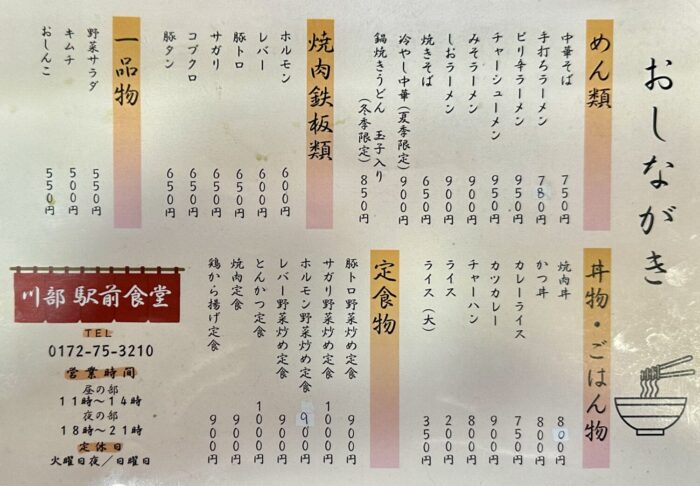 おしながき
めん類
中華そば 750円
手打ちラーメン 780円
ピリ辛ラーメン 950円
チャーシューメン 950円
みそラーメン 900円
しおラーメン 900円
焼きそば 650円
冷やし中華(夏季限定) 900円
鍋焼きうどん 玉子入り
(冬季限定) 850円
焼肉鉄板類
ホルモン 600円
レバー 600円
豚トロ 650円
サガリ 650円
コブクロ 650円
豚タン 650円
一品物
野菜サラダ 550円
キムチ 500円
おしんこ 550円
丼物・ごはん物
焼肉丼 800円
かつ丼 800円
カレーライス 750円
カツカレー 900円
チャーハン 800円
ライス 200円
ライス(大) 350円
定食物
豚トロ野菜炒め定食 900円
サガリ野菜炒め定食 1000円
ホルモン野菜炒め定食 900円
レバー野菜炒め定食 900円
とんかつ定食 1000円
焼肉定食 900円
鶏から揚げ定食 900円
川部 駅前食堂
TEL
0172-75-3210
営業時間
昼の部
11時～14時
夜の部
18時～21時
定休日
火曜日夜／日曜日